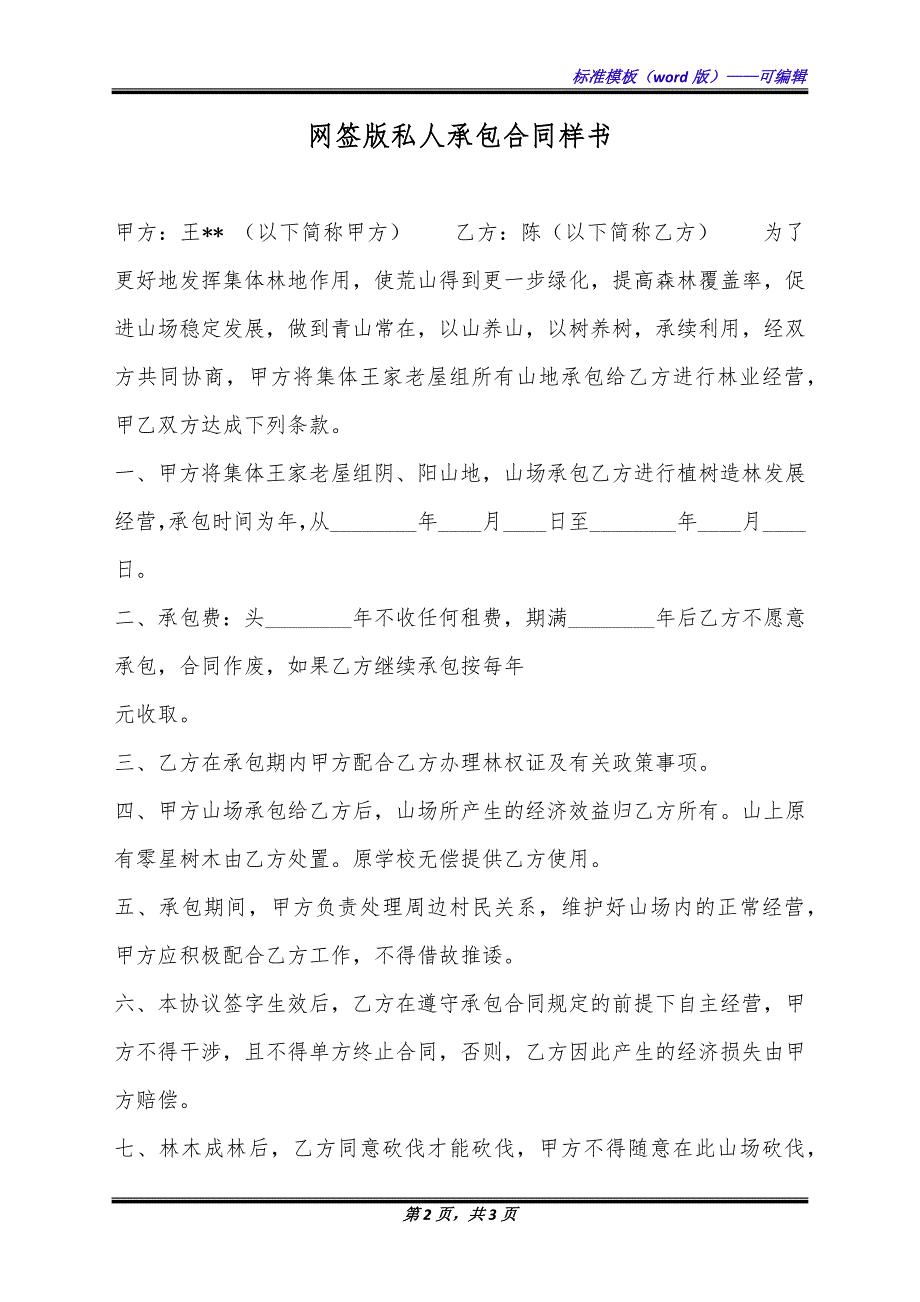 标准模板（word 版）——可编辑
网签版私人承包合同样书
甲方：王** （以下简称甲方）　　乙方：陈（以下简称乙方）　　为了
更好地发挥集体林地作用，使荒山得到更一步绿化，提高森林覆盖率，促
进山场稳定发展，做到青山常在，以山养山，以树养树，承续利用，经双
方共同协商，甲方将集体王家老屋组所有山地承包给乙方进行林业经营，
甲乙双方达成下列条款。
一、甲方将集体王家老屋组阴、阳山地，山场承包乙方进行植树造林发展
经营，承包时间为年，从________年____月____日至________年____月____
日。
二、承包费：头________年不收任何租费，期满________年后乙方不愿意
承包，合同作废，如果乙方继续承包按每年
元收取。
三、乙方在承包期内甲方配合乙方办理林权证及有关政策事项。
四、甲方山场承包给乙方后，山场所产生的经济效益归乙方所有。山上原
有零星树木由乙方处置。原学校无偿提供乙方使用。
五、承包期间，甲方负责处理周边村民关系，维护好山场内的正常经营，
甲方应积极配合乙方工作，不得借故推诿。
六、本协议签字生效后，乙方在遵守承包合同规定的前提下自主经营，甲
方不得干涉，且不得单方终止合同，否则，乙方因此产生的经济损失由甲
方赔偿。
七、林木成林后，乙方同意砍伐才能砍伐，甲方不得随意在此山场砍伐，
第 2 页，共 3 页